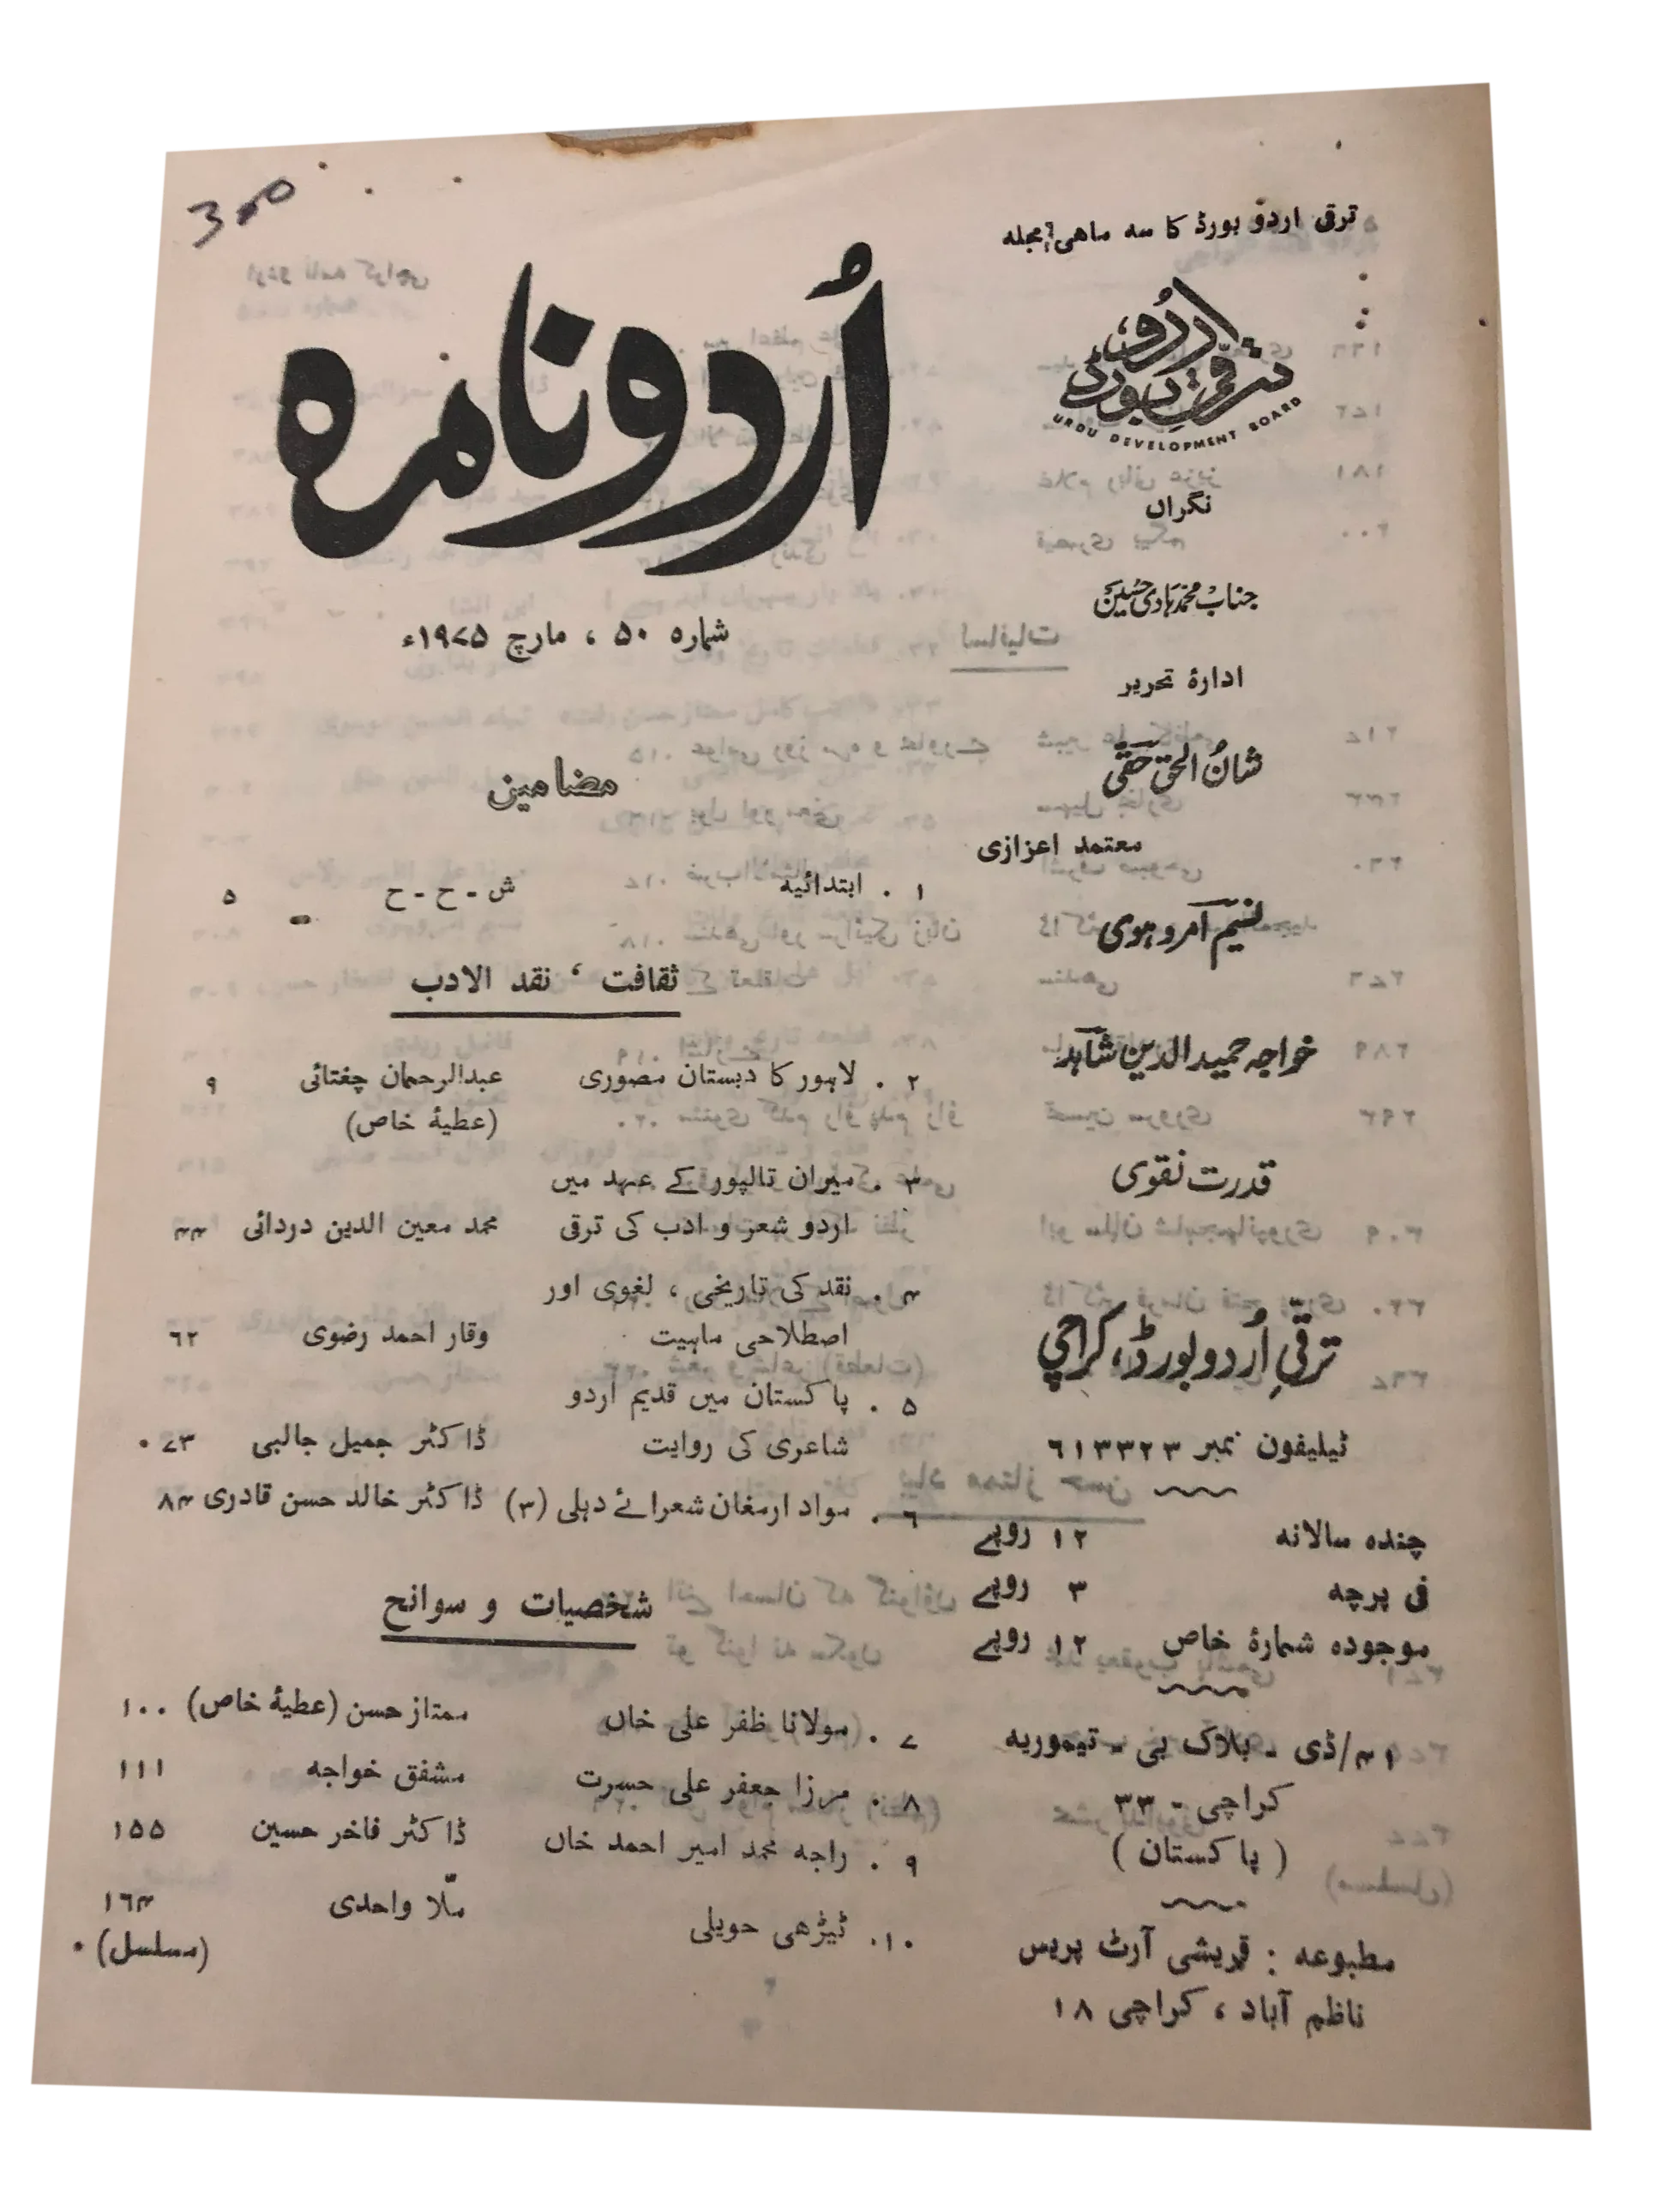 300
ترقی اردو بورڈ کا سہ ماہی مجلہ
ترقی اردو بورڈ
URDU DEVELOPMENT BOARD
نگراں
جناب محمد ہادی حسین
ادارۂ تحریر
شانُ الحق حقی
معتمد اعزازی
نسیم امروہوی
خواجہ حمید الدین شاہد
قدرت نقوی
ترقیِ اُردو بورڈ، کراچی
ٹیلیفون نمبر ۶۱۳۳۲۳
چندہ سالانہ ۱۲ روپے
فی پرچہ ۳ روپے
موجودہ شمارۂ خاص ۱۲ روپے
۴۱/ڈی - بلاک بی - تیموریہ
کراچی - ۳۳
( پاکستان )
مطبوعہ : قریشی آرٹ پریس
ناظم آباد ، کراچی ۱۸
اُردو نامہ
شمارہ ۵۰ ، مارچ ۱۹۷۵ء
مضامین
۱ . ابتدائیہ ش - ح - ح ۵
ثقافت ، نقد الادب
۲ . لاہور کا دبستان مصوری عبدالرحمان چغتائی ۹
(عطیۂ خاص)
۳ . میران تالپور کے عہد میں
اردو شعر و ادب کی ترقی محمد معین الدین دردائی ۴۴
۴ . نقد کی تاریخی ، لغوی اور
اصطلاحی ماہیت وقار احمد رضوی ۶۲
۵ . پاکستان میں قدیم اردو
شاعری کی روایت ڈاکٹر جمیل جالبی ۷۳
۶ . سواد ارمغان شعرائے دہلی (۳) ڈاکٹر خالد حسن قادری ۸۴
شخصیات و سوانح
۷ . مولانا ظفر علی خاں ممتاز حسن (عطیۂ خاص) ۱۰۰
۸ . مرزا جعفر علی حسرت مشفق خواجہ ۱۱۱
۹ . راجہ محمد امیر احمد خاں ڈاکٹر فاخر حسین ۱۵۵
۱۰ . ٹیڑھی حویلی ملّا واحدی ۱۶۴
(مسلسل)